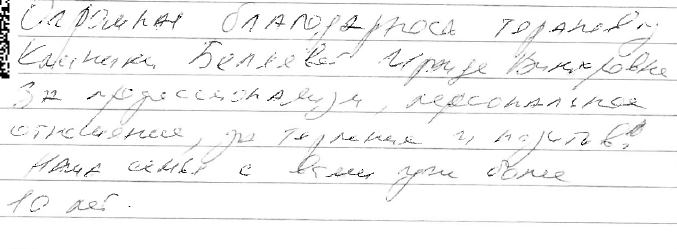 Огромная благодарность терапевту
клиники Беляевой Ирине Викторовне
за профессионализм, персональное
отношение, за терпение и позитив!
Наша семья с вами уже более
10 лет.